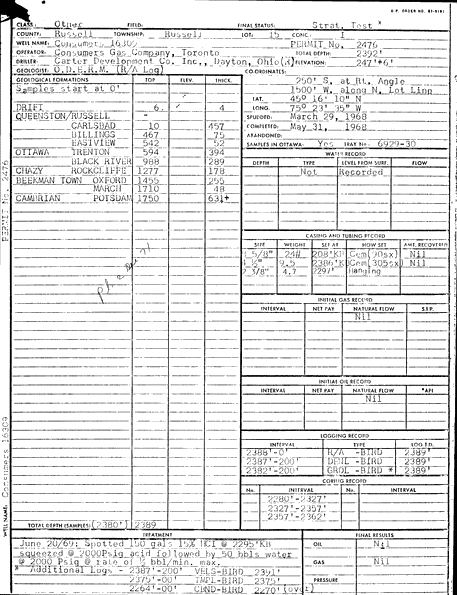 O.P. ORDER NO. 87-9181
CLASS: Other FIELD: FINAL STATUS: Strat. Test *
COUNTY: Russell TOWNSHIP: Russell LOT: 15 CONC: I
WELL NAME: Consumers 16309 PERMIT No. 2476
OPERATOR: Consumers Gas Company, Toronto TOTAL DEPTH: 2392'
DRILLER: Carter Development Co. Inc., Dayton, Ohio ELEVATION: 247'*6'
GEOLOGIST: O.D.E.R.M. (R/A Log) CO-ORDINATES:
GEOLOGICAL FORMATIONS TOP ELEV. THICK.
250' S, at Rt. Angle
Samples start at 0'
1500' W, along N, Lot Line
LAT. 45° 16' 10" N
LONG. 75° 23' 35" W
DRIFT 6 4
SPUDDED: March 29, 1968
QUEENSTON/RUSSELL -
COMPLETED: May 31, 1968
CARLSBAD 10 457
BILLINGS 467 75
ABANDONED:
EASTVIEW 542 52
SAMPLES IN OTTAWA: Yes TRAY No. 6929-30
OTTAWA TRENTON 594 394
WATER RECORD
BLACK RIVER 988 289
DEPTH TYPE LEVEL FROM SURF. FLOW
CHAZY ROCKCLIFFE 1277 178
Not Recorded
BEEKMAN TOWN OXFORD 1455 255
MARCH 1710 48
CAMBRIAN POTSDAM 1750 631+
CASING AND TUBING RECORD
SIZE WEIGHT SET AT HOW SET AMT. RECOVERED
5/8" 24# 208'KB Cem(90sx) Nil
½" 9.5 2386'KB Cem(305sx) Nil
3/8" 4.7 2297' Hanging
INITIAL GAS RECORD
INTERVAL NET PAY NATURAL FLOW S.I.P.
Nil
INITIAL OIL RECORD
INTERVAL NET PAY NATURAL FLOW °API
Nil
LOGGING RECORD
INTERVAL TYPE LOG T.D.
2388'-0' R/A -BIRD 2389'
2387'-200' DENL -BIRD 2389'
2382'-200' GROL -BIRD * 2389'
CORING RECORD
No. INTERVAL No. INTERVAL
2280'-2327'
2327'-2357'
2357'-2362'
TOTAL DEPTH (SAMPLES) (2380') 2389
TREATMENT
FINAL RESULTS
June 20/69: Spotted 150 gals 15% HCl @ 2295'KB
OIL Nil
squeezed @ 2000Psig acid followed by 50 bbls water
@ 2000 Psig @ rate of ½ bbl/min. max.
GAS Nil
* Additional Logs - 2387'-200' VELS-BIRD 2391'
2375'-00' TMPL-BIRD 2375'
PRESSURE
2264'-00' CBND-BIRD 2270'
PERMIT No. 2476
WELL NAME: Consumers 16309